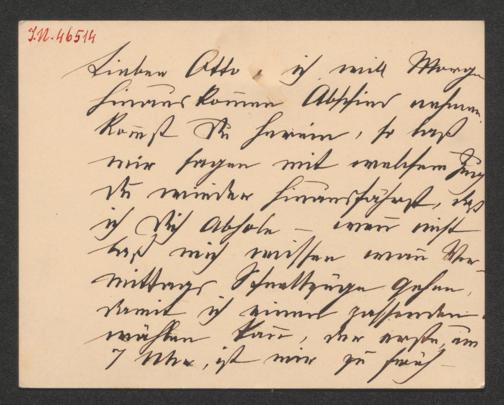 I.N. 46514
Lieber Otto, ich will Morgen
hinauskommen Abschied nehmen.
Komst Du herein, so laß
mir sagen mit welchem Zug
Du wieder hinausfährst, daß
ich Dich abhole – wenn nicht
laß mich wissen wann Vor-
mittags Schnellzüge gehen,
damit ich einen passenden
wählen kann, der erste, um
7 Uhr, ist mir zu früh –